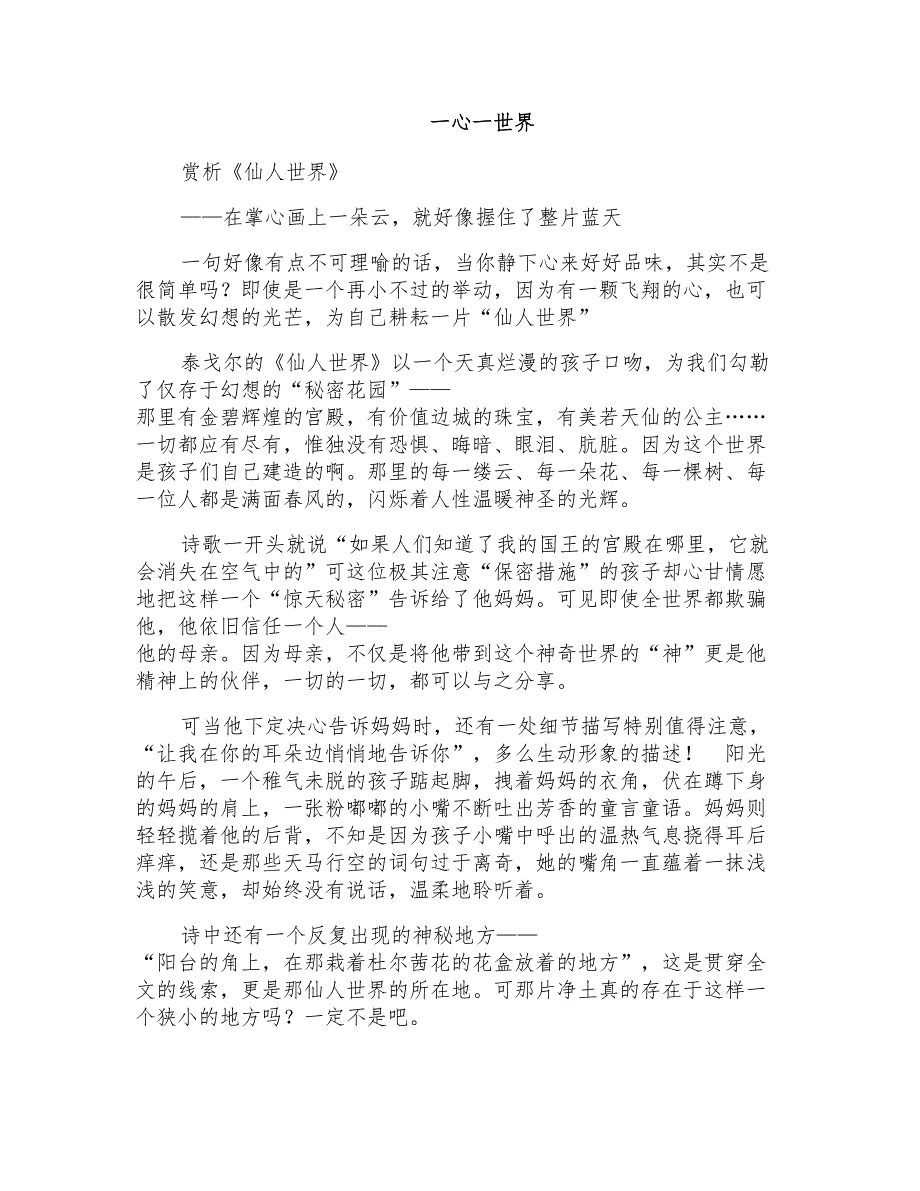 一心一世界
赏析《仙人世界》
——在掌心画上一朵云，就好像握住了整片蓝天
一句好像有点不可理喻的话，当你静下心来好好品味，其实不是
很简单吗？即使是一个再小不过的举动，因为有一颗飞翔的心，也可
以散发幻想的光芒，为自己耕耘一片“仙人世界”
泰戈尔的《仙人世界》以一个天真烂漫的孩子口吻，为我们勾勒
了仅存于幻想的“秘密花园”——
那里有金碧辉煌的宫殿，有价值边城的珠宝，有美若天仙的公主……
一切都应有尽有，惟独没有恐惧、晦暗、眼泪、肮脏。因为这个世界
是孩子们自己建造的啊。那里的每一缕云、每一朵花、每一棵树、每
一位人都是满面春风的，闪烁着人性温暖神圣的光辉。
诗歌一开头就说“如果人们知道了我的国王的宫殿在哪里，它就
会消失在空气中的”可这位极其注意“保密措施”的孩子却心甘情愿
地把这样一个“惊天秘密”告诉给了他妈妈。可见即使全世界都欺骗
他，他依旧信任一个人——
他的母亲。因为母亲，不仅是将他带到这个神奇世界的“神”更是他
精神上的伙伴，一切的一切，都可以与之分享。
可当他下定决心告诉妈妈时，还有一处细节描写特别值得注意，
“让我在你的耳朵边悄悄地告诉你”，多么生动形象的描述！ 阳光
的午后，一个稚气未脱的孩子踮起脚，拽着妈妈的衣角，伏在蹲下身
的妈妈的肩上，一张粉嘟嘟的小嘴不断吐出芳香的童言童语。妈妈则
轻轻揽着他的后背，不知是因为孩子小嘴中呼出的温热气息挠得耳后
痒痒，还是那些天马行空的词句过于离奇，她的嘴角一直蕴着一抹浅
浅的笑意，却始终没有说话，温柔地聆听着。
诗中还有一个反复出现的神秘地方——
“阳台的角上，在那栽着杜尔茜花的花盒放着的地方”，这是贯穿全
文的线索，更是那仙人世界的所在地。可那片净土真的存在于这样一
个狭小的地方吗？一定不是吧。